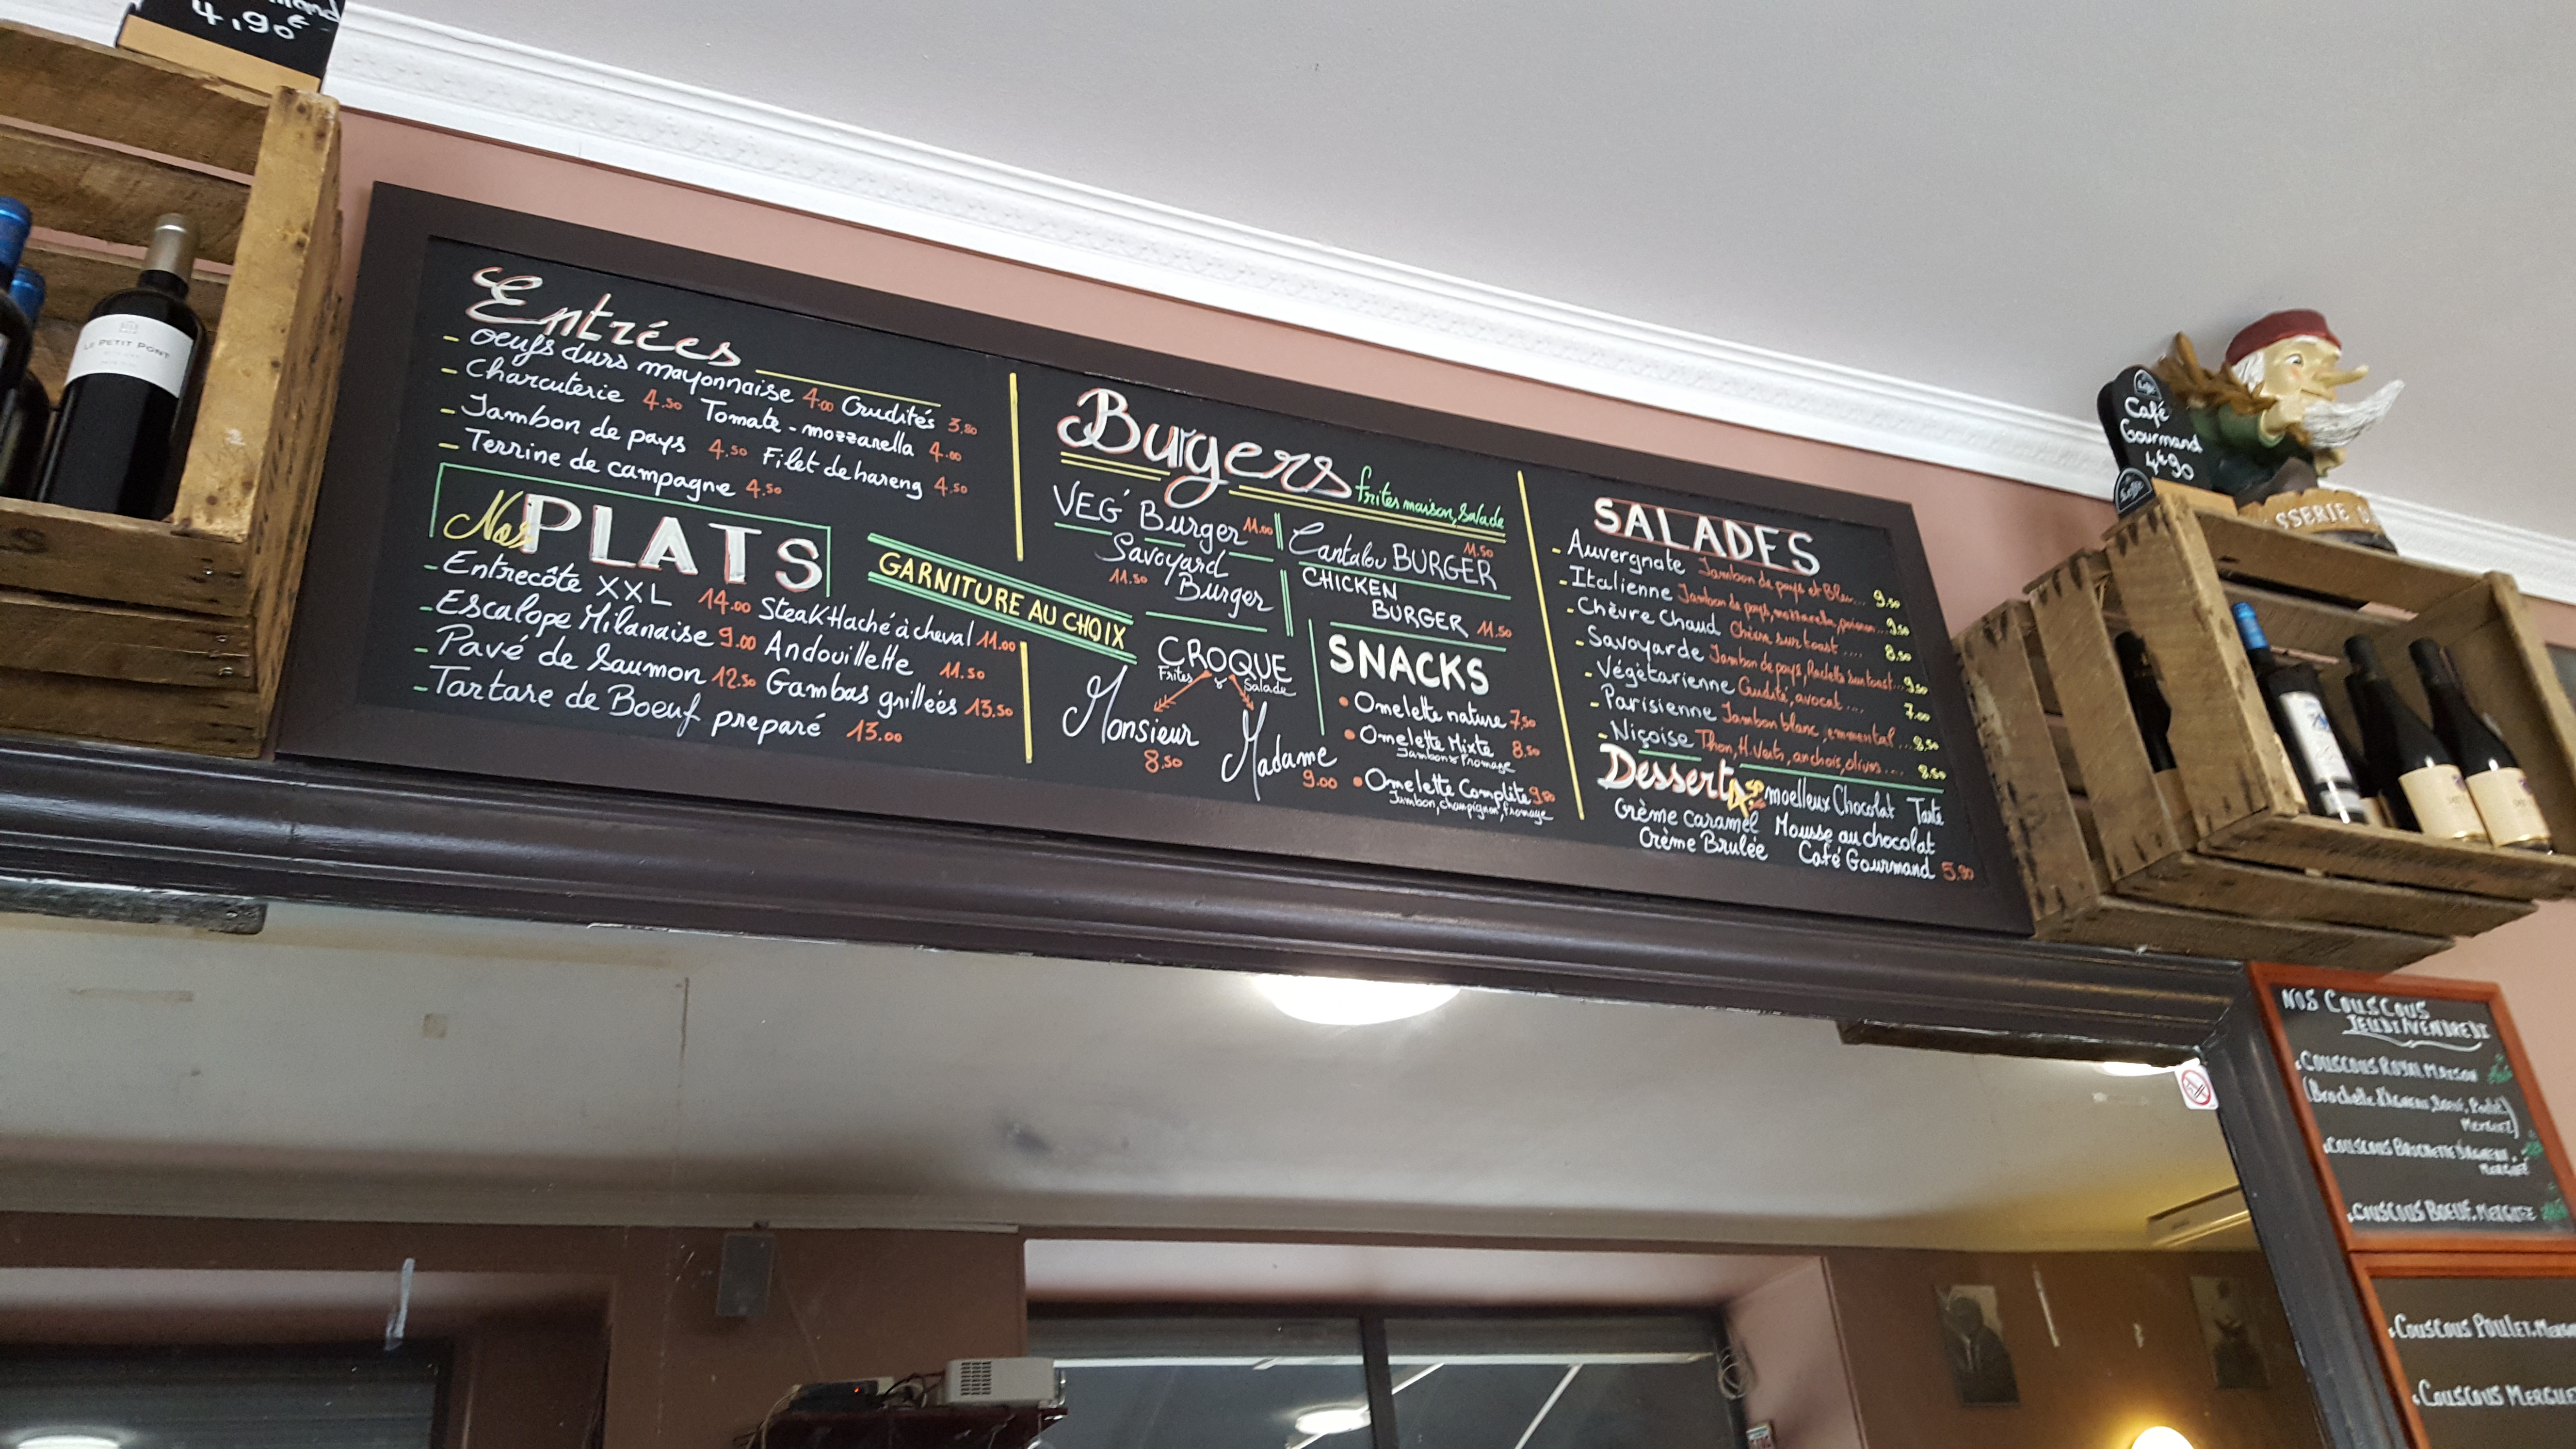 4,90€
LE PETIT PONT
Entrées
- Oeufs durs mayonnaise 4.00 Crudités 3.80
- Charcuterie 4.50 Tomate - mozzarella 4.00
- Jambon de pays 4.50 Filet de hareng 4.50
- Terrine de campagne 4.50
Nos PLATS
- Entrecôte XXL 14.00 Steak Haché à cheval 11.00
- Escalope Milanaise 9.00 Andouillette 11.50
- Pavé de Saumon 12.50 Gambas grillées 13.50
- Tartare de Boeuf preparé 13.00
GARNITURE AU CHOIX
Burgers frites maison, salade
VEG' Burger 11.00
Cantalou BURGER 11.50
Savoyard
11.50 Burger
CHICKEN
BURGER 11.50
CROQUE
Frites Salade
Monsieur
8.50
Madame
9.00
SNACKS
• Omelette nature 7.50
• Omelette Mixte 8.50
Jambon & Fromage
• Omelette Complète
Jambon, champignon, fromage
SALADES
- Auvergnate Jambon de pays et Bleu... 9.50
- Italienne Jambon de pays, mozzarella, poivron... 9.50
- Chèvre Chaud Chèvre sur toast .... 8.50
- Savoyarde Jambon de pays, Raclette sur toast... 9.50
- Végétarienne Crudité, avocat .... 7.00
- Parisienne Jambon blanc, emmental ... 8.50
- Niçoise Thon, H. Verts, anchois, olives .... 8.50
Desserts moelleux Chocolat Tarte
Crème Caramel Mousse au chocolat
Crème Brulée Café Gourmand 5.90
Café
Gourmand
4€90
SSERIE D
NOS COUSCOUS
JEUDI/VENDREDI
COUSCOUS ROYAL MAISON
(Brochette d'Agneau, Boeuf, Poulet
Merguez)
COUSCOUS BROCHETTE D'AGNEAU
MERGUEZ
COUSCOUS BOEUF, MERGUEZ
COUSCOUS POULET
COUSCOUS MERGUE